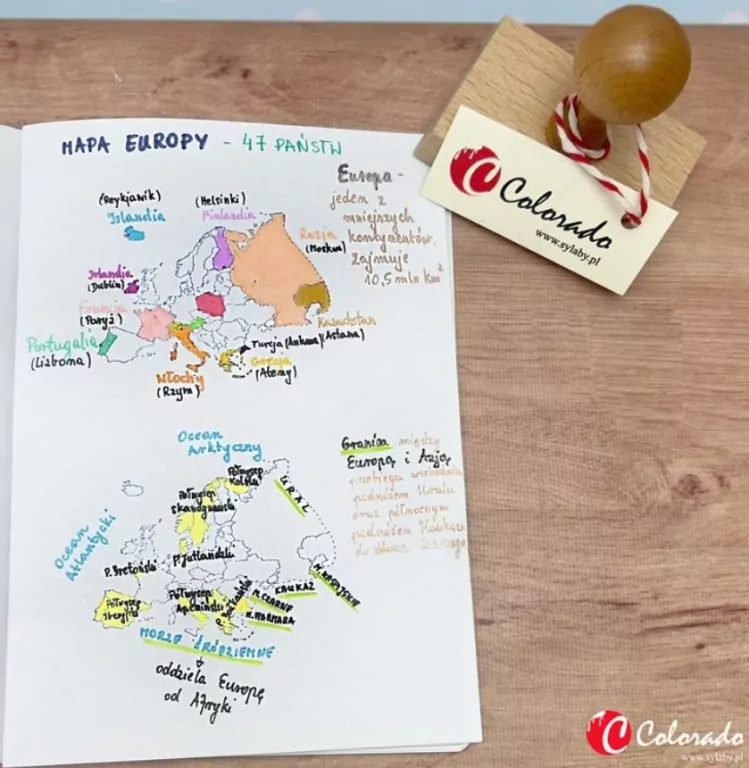 MAPA EUROPY - 47 PAŃSTW
Europa -
jeden z
mniejszych
kontynentów.
Zajmuje
10,5 mln km²
(Reykjawik)
Islandia
(Helsinki)
Finlandia
Rosja
(Moskwa)
Irlandia
(Dublin)
Francja
(Paryż)
Portugalia
(Lizbona)
Włochy
(Rzym)
Kazachstan
(Astana)
Turcja (Ankara)
Grecja
(Ateny)
Colorado
www.sylaby.pl
Ocean
Arktyczny
Ocean
Atlantycki
Półwysep
Kolski
Półwysep
Skandynawski
URAL
P. Jutlandzki
P. Bretoński
Półwysep
Iberyjski
Półwysep
Apeniński
P. Bałkański
M. CZARNE
M. MARMARA
KAUKAZ
M. KASPIJSKIE
MORZE ŚRÓDZIEMNE
oddziela Europę
od Afryki
Granica między
Europą i Azją
przebiega wschodnim
podnóżem Uralu
oraz północnym
podnóżem Kaukazu
do
Colorado
www.sylaby.pl